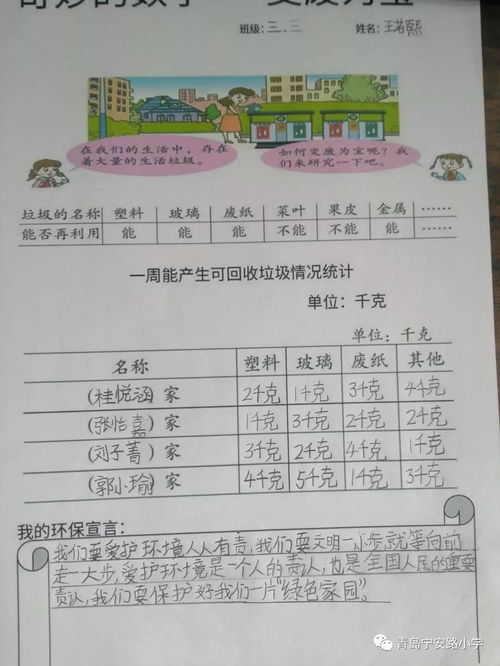 奇妙的数学——变废为宝
班级：三、三 姓名：王若熙
在我们的生活中，存在着大量的生活垃圾。
如何变废为宝呢？我们来研究一下吧。
垃圾的名称 塑料 玻璃 废纸 菜叶 果皮 金属 ……
能否再利用 能 能 能 不能 不能 能 ……
一周能产生可回收垃圾情况统计
单位：千克
单位：千克
名称 塑料 玻璃 废纸 其他
(桂悦涵) 家 2千克 1千克 3千克 4千克
(张怡嘉) 家 1千克 3千克 2千克 2千克
(刘子菁) 家 3千克 2千克 4千克 1千克
(郭小瑜) 家 4千克 5千克 1千克 3千克
我的环保宣言：
我们要爱护环境人人有责，我们要文明一小步就等向前
走一大步，爱护环境是一个人的责认，也是全国人民的重要
责认，我们要保护好我们一片“绿色家园”。
青岛宁安路小学